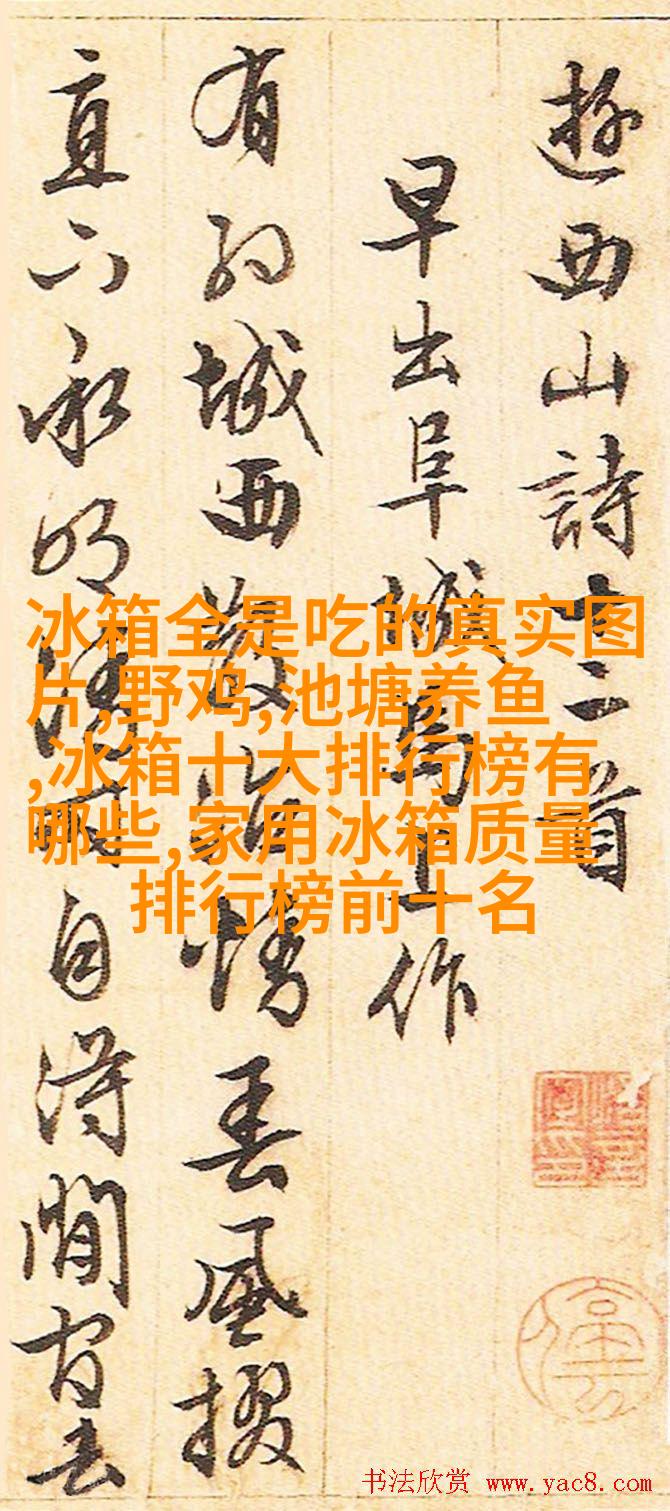 遊西山詩十二首
早出阜城馬上作
有約城西散冶情春風掇
直下承明自得閒官去
冰箱全是吃的真实图
片,野鸡,池塘养鱼
,冰箱十大排行榜有
哪些,家用冰箱质量
排行榜前十名
书法欣赏 www.yac8.com